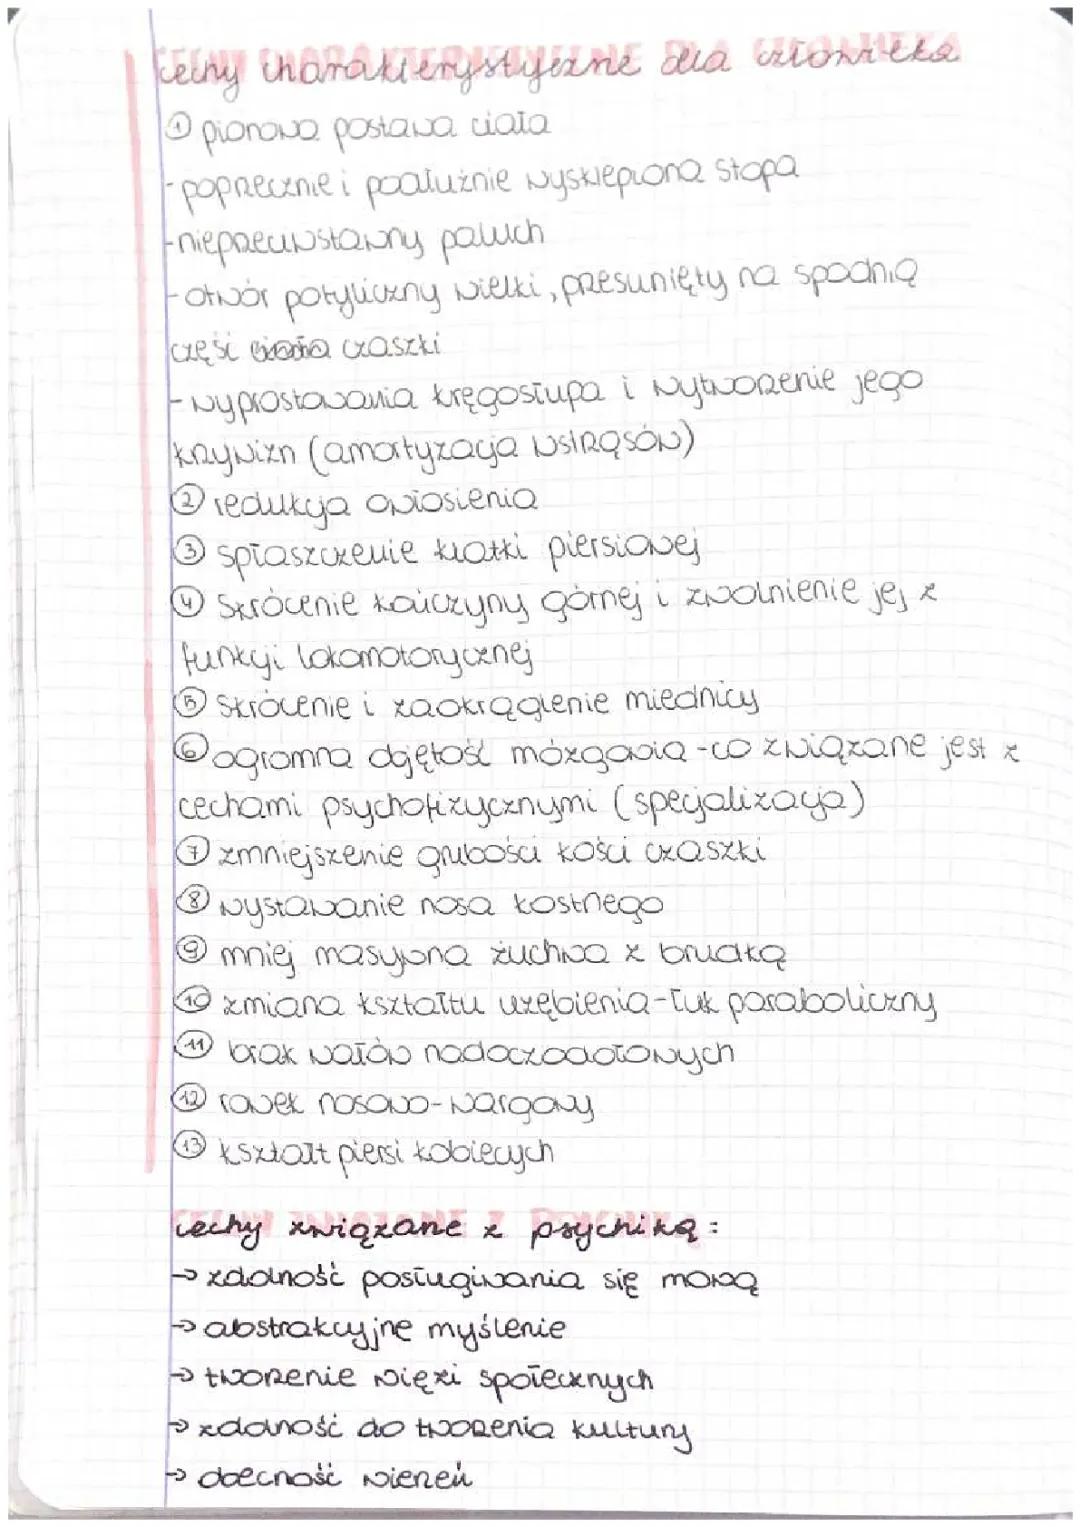 cechy charakterystyczne dla człowieka
① pionowa postawa ciała
- poprzecznie i podłużnie wysklepiona stopa
- nieprzeciwstawny paluch
- otwór potyliczny wielki, przesunięty na spodnią
część czaszki
- wyprostowania kręgosłupa i wytworzenie jego
krzywizn (amortyzacja wstrząsów)
② redukcja owłosienia
③ spłaszczenie klatki piersiowej
④ Skrócenie kończyny górnej i zwolnienie jej z
funkcji lokomotorycznej
⑤ Skrócenie i zaokrąglenie miednicy
⑥ ogromna objętość mózgowia - co związane jest z
cechami psychofizycznymi (specjalizacja)
⑦ zmniejszenie grubości kości czaszki
⑧ wystawanie nosa kostnego
⑨ mniej masywna żuchwa z bródką
⑩ zmiana kształtu uzębienia - łuk paraboliczny
⑪ brak wałów nadoczodołowych
⑫ rowek nosowo-wargowy
⑬ kształt piersi kobiecych
cechy związane z psychiką:
→ zdolność posługiwania się mową
→ abstrakcyjne myślenie
→ tworzenie więzi społecznych
→ zdolność do tworzenia kultury
→ obecność wierzeń